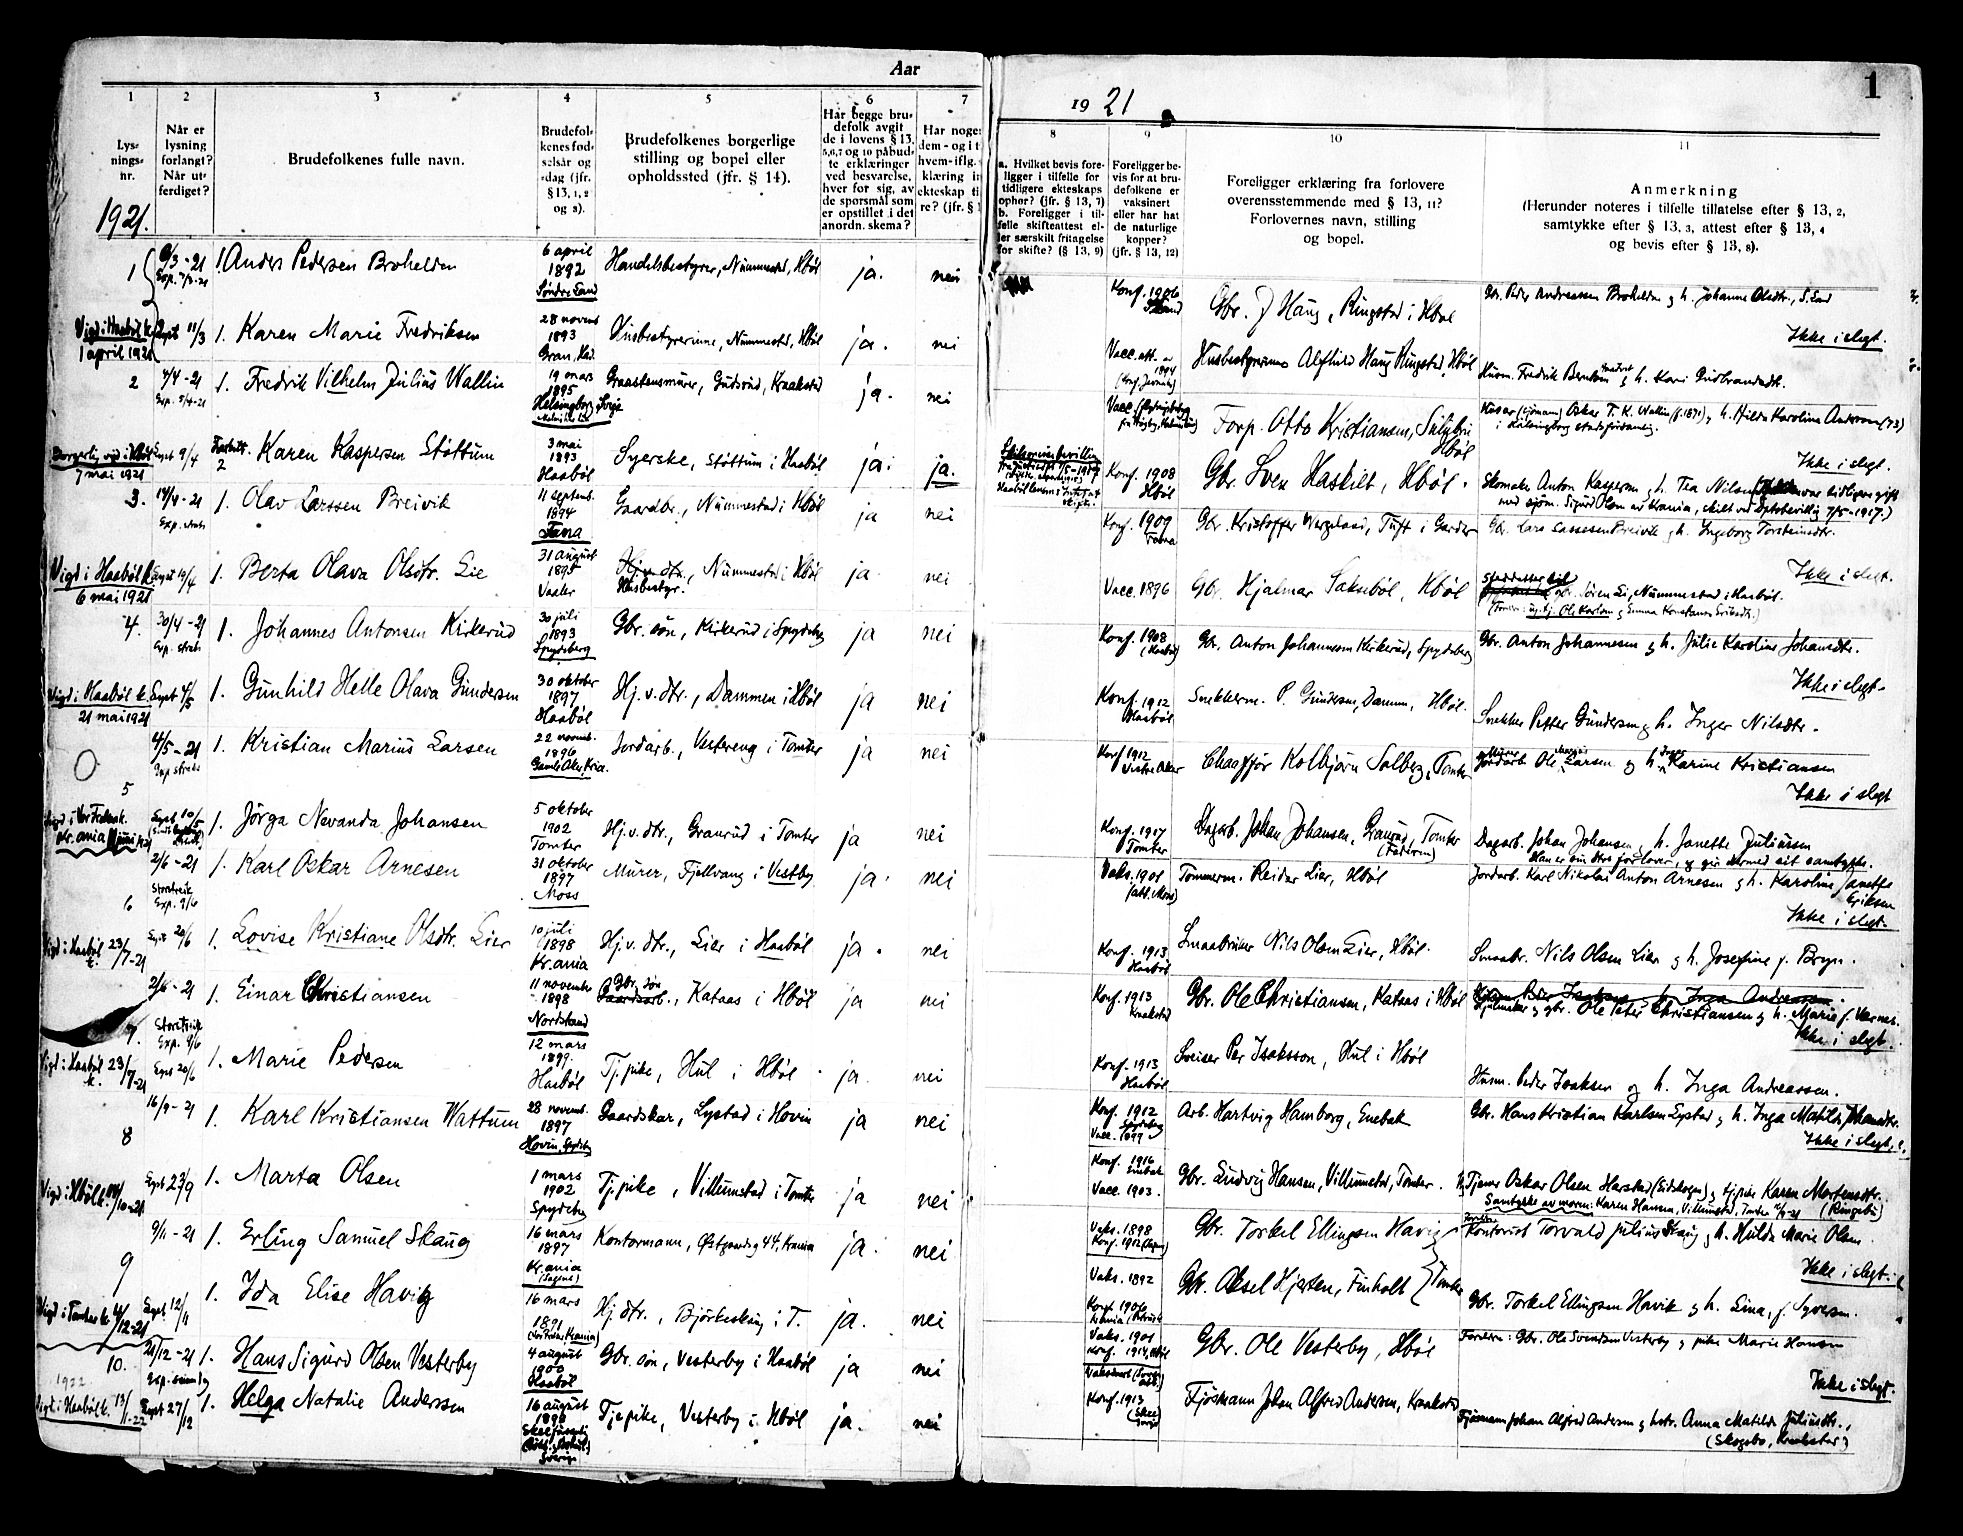 Aar
1921
1
1
Lys-
nings-
nr.
2
Når er
lysning
forlangt?
Når ut-
ferdiget?
3
Brudefolkenes fulle navn.
4
Brudefol-
kenes fød-
selsår og
-dag (jfr.
§ 13, 1, 2
og 3).
5
Brudefolkenes borgerlige
stilling og bopel eller
opholdssted (jfr. § 14).
6
Har begge bru-
defolk avgit
de i lovens § 13,
5,6,7 og 10 påbud-
te erklæringer
ved besvarelse,
hver for sig, av
de spørsmål som
er opstillet i det
anordn. skema?
7
Har noge
dem - og i t
hvem - iflg.
klæring in
ekteskap ti
re? (jfr. §
8
a. Hvilket bevis fore-
ligger i tilfelle for
tidligere ekteskaps
ophør? (jfr. § 13, 7)
b. Foreligger i til-
felle skifteattest el-
ler særskilt fritagelse
for skifte? (§ 13, 9)
9
Foreligger be-
vis for at bru-
defolkene er
vaksinert
eller har hat
de naturlige
kopper?
(jfr. § 13, 12)
10
Foreligger erklæring fra forlovere
overensstemmende med § 13, 11?
Forlovernes navn, stilling
og bopel.
11
Anmerkning
(Herunder noteres i tilfelle tillatelse efter § 13, 2,
samtykke efter § 13, 3, attest efter § 13, 4
og bevis efter § 13, 8).
1921.
1 1. Anders Pedersen Broholden
6 april
1892
Søndre Land
Handelsbestyrer, Nummestad, Hbøl
ja. nei
Konf. 1906
Gbr. J Haug, Ringstad i Hbøl
Gbr. Peder Andreassen Broholden og h. Johanne Olsdtr., S. Land
Ikke i slegt.
Vigd i Haabøl k.
1 april 1921
11/3 1. Karen Marie Fredriksen
28 novemb
1893
Gran, Had.
Husbestyrerinne, Nummestad, Hbøl
ja. nei
Vacc. att.
Husbestyrerinne Alfhild Haug Ringstad, Hbøl
Husm. Fredrik Berntsen og h. Kari Gudbrandsdt.
2 4/4-21
Exp. 5/4-21
1. Fredrik Vilhelm Julius Wallin
19 mars
1895
Helsingborg, Sverige
Graastensmurer, Gudsrud, Kraakstad
ja. nei
Forp. Otto Kristiansen,
Hbøl
Oskar T. K. Wallin (f. 1871) og h. Hilda Karolina Andersson (73)
Ikke i slegt.
Borgerlig vid i Hbøl
7 mai 1921
9/4 2 Karen Kaspersen Støttum
3 mai
1893
Haabøl
Syerske, Støttum i Haabøl
ja. ja.
Konf. 1908
Hbøl
Gbr. Sven Haskilt, Hbøl.
Skomaker Anton Kaspersen og h. Tea Nilsen
3. 1. Olav Larssen Breivik
11 septemb.
1894
Fana
Gaardbr., Nummestad i Hbøl
ja nei
Konf. 1909
Fana
Gbr. Kristoffer Wergeland, Tuft i Garder
Gbr. Lars Lassesen Breivik og h. Ingeborg Torsteinsdtr.
Ikke i slegt.
Vigd i Haabøl k.
6 mai 1921
1. Berta Olava Olsdtr. Lie
31 august
1895
Vaaler
Hj. v. dtr., Nummestad i Hbøl
Husbestyr.
ja nei
Vacc. 1896
Gbr. Hjalmar Saksebøl, Hbøl
4. 30/4-21
Exp. straks
1. Johannes Antonsen Kirkerud
30 juli
1893
Spydeberg
Gbr. søn, Kirkerud i Spydebg
ja nei
Konf. 1908
Gbr. Anton Johannesen Kirkerud, Spydeberg
Gbr. Anton Johannesen og h. Julie Karoline Johansdtr.
Ikke i slegt.
Vigd i Haabøl k.
21 mai 1921
1. Gunhild Helle Olava Gundersen
30 oktober
1897
Haabøl
Hj. v. dtr., Dammen i Hbøl
ja nei
Konf. 1912
Haabøl
Snekkerm. P. Gundersen, Dammen, Hbøl.
Snekker Petter Gundersen og h. Inger Nilsdtr.
5 4/5-21
Exp straks
1. Kristian Marius Larsen
22 novemb.
1896
Gamle Aker, Kria.
Jordarb., Vestereng i Tomter
ja nei
Konf 1912
Vestre Aker
Chaufför Kolbjørn Solberg, Tomter
Jordarb Ole Larsen og h. Karine Kristiansen
Ikke i slegt
1. Jørga Nevanda Johansen
5 oktober
1902
Tomter
Hj. v. dtr., Granrud i Tomter
ja nei
Konf. 1917
Tomter
Dagarb. Johan Johansen, Granrud, Tomter
(Faderen)
Dagarb. Johan Johansen og h. Janette Juliussen
6 2/6-21
Storetveit
Exp. 9/6
1. Karl Oskar Arnesen
31 oktober
1897
Moss
Murer, Fjellvang i Vestby
ja. nei
Vaks. 1901
Tømmerm. Reidar Lier, Hbøl
Jordarb. Karl Nikolai Anton Arnesen og h. Karoline Janette
Eriksen
Ikke i slegt.
Vigd i Haabøl
k. 23/7-21
1. Lovise Kristiane Olsdtr. Lier
10 juli
1898
Kr.ania
Hj. v. dtr., Lier i Haabøl
ja. nei
Konf. 1913
Haabøl
Smaabruker Nils Olsen Lier, Hbøl.
Smaabr. Nils Olsen Lier og h. Josefine f. Bryn.
7. 2/6-21
Storetveit
Exp. 9/6
1. Einar Christiansen
11 november
1898
Nordstrand
Gbr. søn
Gaardsarb., Kataas i Hbøl
ja nei
Konf. 1913
Kraakstad
Gbr. Ole Christiansen, Kataas i Hbøl
Hjulmaker og gbr. Ole Peter Christiansen og h. Marie f. Vernes.
Ikke i slegt.
Vigd i Haabøl
k. 23/7-21
1. Marie Pedersen
12 mars
1899.
Haabøl
Tj. pike, Hul i Hbøl
ja. nei
Konf. 1913
Haabøl
Sveiser Per Isaksson, Hul i Hbøl
Husm. Peder Isaksen og h. Inga Andreassen.
8 16/9-21
1. Karl Kristiansen Wattum
28 novemb.
1897
Hovin, Spydebg
Gaardskar, Lystad i Hovin
ja nei
Konf. 1912
Spydeberg
Vacc. 1899
Arb. Hartvig Hamborg, Enebak
Gbr. Hans Kristian Karlsen Lystad og h. Inga Matilde Johansdtr.
Ikke i slegt.
Vigd i Hbøl k.
23/9 1. Marta Olsen
1 mars
1902
Spydebg
Tj. pike, Villumstad i Tomter
ja nei
Konf. 1916
Enebak
Vacc. 1903.
Gbr. Ludvig Hansen, Villumstad, Tomter.
Tjener Oskar Olsen Harstad (Eidskogen) og tj. pike Karen Mortensdtr.
Samtykke av moren: Karen Hansen, Villumstad, Tomter
(Ringebu)
9 9/11-21
1. Erling Samuel Skaug
16 mars
1897
Kr.ania
(Sagene)
Kontormann, Østgaardsg 44, Krania
ja. nei
Vaks. 1898
Gbr. Torkel Ellingsen Havig
Kontorist Torvald Julius Skaug og h. Hilda Marie Olsen
Ikke i slegt.
Vigd i Tomter k.
12/11 1. Ida Elise Havig
16 mars
1891
Hj. dtr., Bjørkeskaug i T.
ja. nei
Vaks. 1892
Gbr. Aksel Hjorten, Finholt
Tomter
Gbr. Torkel Ellingsen Havik og h. Lina, f. Syversen.
10. 21/12-21
1. Hans Sigurd Olsen Vesterby
4 august
1900
Haabøl
Gbr. søn, Vesterby i Haabøl
ja nei
Vaks. 1901
Konf. 1914, Hbøl
Gbr. Ole Vesterby, Hbøl
Foreldre: Gbr. Ole Svendsen Vesterby og pike Marie Hansen
Ikke i slegt.
1922
Vigd i Haabøl k. 13/1-22
27/12 1. Helga Natalie Andersen
16 august
Sverige
Tjepike, Vesterby i Hbøl
ja. nei
Konf. 1913
Fjøsmann Johan Alfred Andersen, Kraakstad
Fjøsmann Johan Alfred Andersen og hstr. Anna Matilda Juliusdtr.,
(Skogebo, Kraakstad)